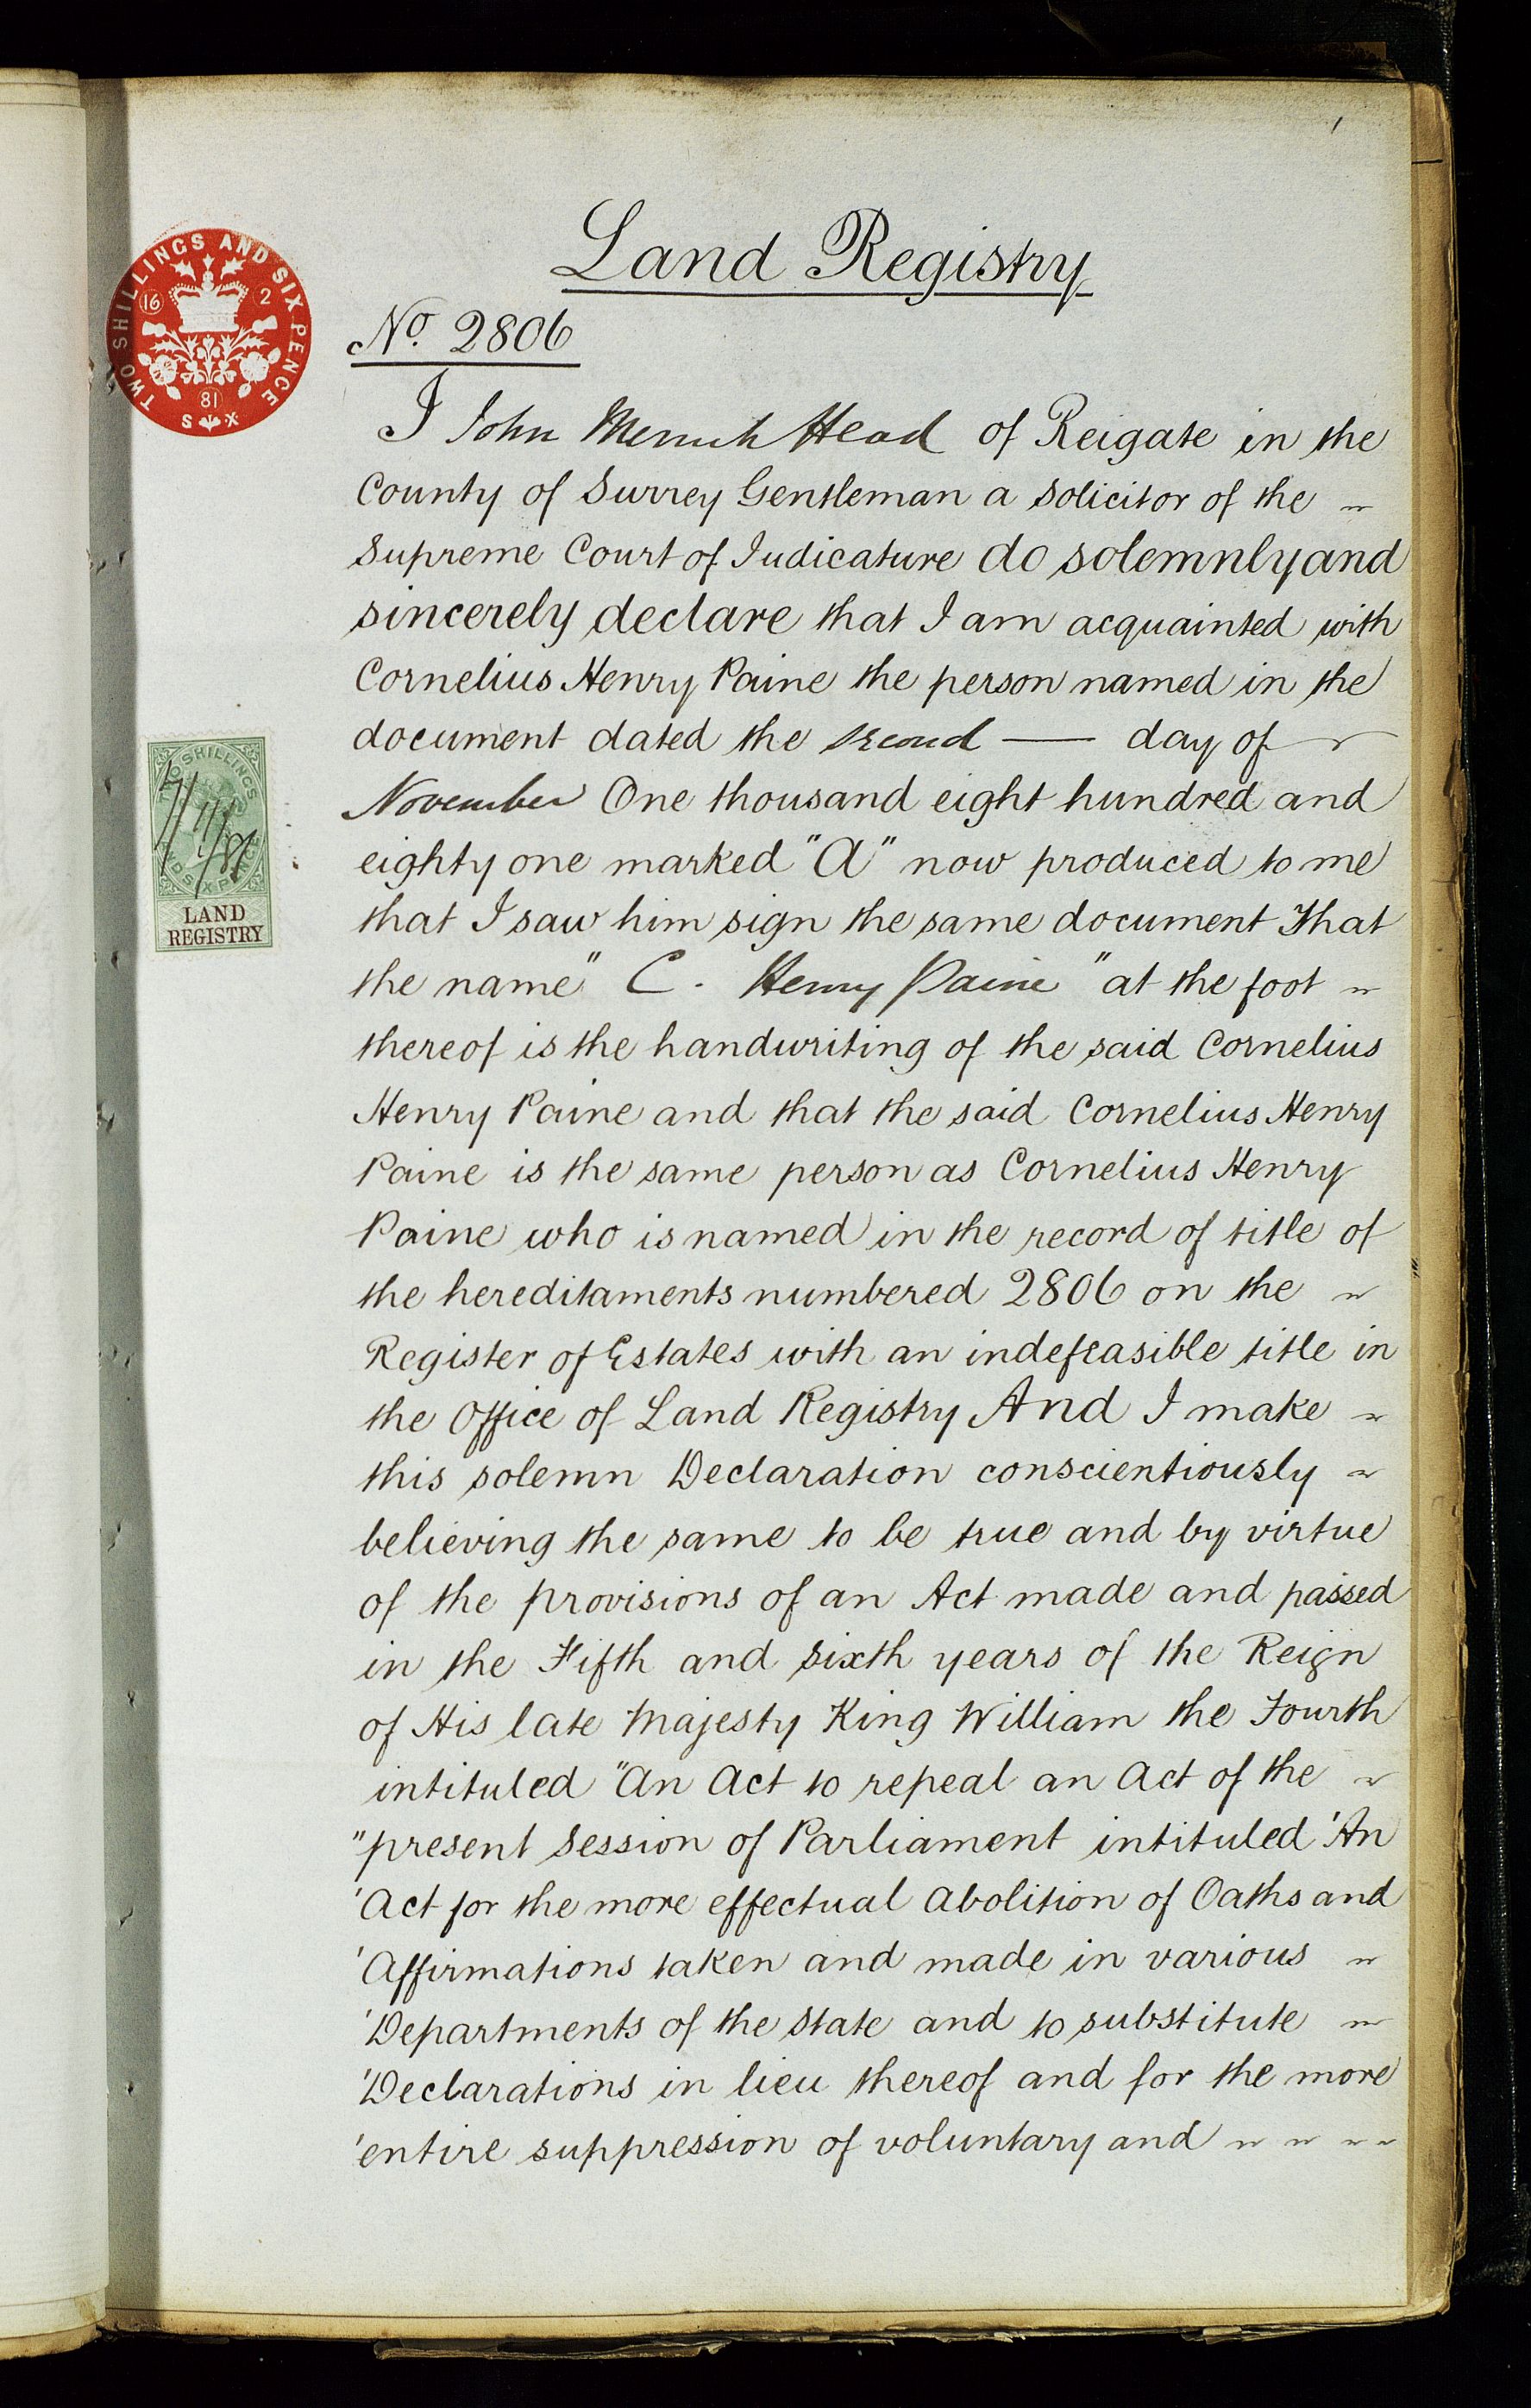 Land Registry
No. 2806
TWO SHILLINGS AND SIX PENCE
16 2
81
S X
I John Merrick Head of Reigate in the
County of Surrey Gentleman a Solicitor of the
Supreme Court of Judicature do solemnly and
sincerely declare that I am acquainted with
Cornelius Henry Paine the person named in the
document dated the second — day of
November One thousand eight hundred and
eighty one marked "A" now produced to me
that I saw him sign the same document That
the name "C. Henry Paine" at the foot
thereof is the handwriting of the said Cornelius
Henry Paine and that the said Cornelius Henry
Paine is the same person as Cornelius Henry
Paine who is named in the record of title of
the hereditaments numbered 2806 on the
Register of Estates with an indefeasible title in
the Office of Land Registry And I make
this solemn Declaration conscientiously
believing the same to be true and by virtue
of the provisions of an Act made and passed
in the Fifth and Sixth years of the Reign
of His late Majesty King William the Fourth
intituled "An Act to repeal an Act of the
"present Session of Parliament intituled 'An
'Act for the more effectual Abolition of Oaths and
'Affirmations taken and made in various
'Departments of the State and to substitute
'Declarations in lieu thereof and for the more
'entire suppression of voluntary and
TWO SHILLINGS
AND SIX PENCE
7/11/81
LAND
REGISTRY